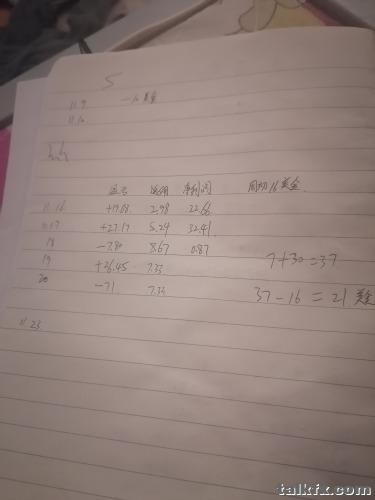 5
11.9 —10美金
11.10
盈亏 返佣 净利润 周初16美金
11.16 +19.68 2.98 22.66
11.17 +27.17 5.24 32.41
18 -7.80 8.67 0.87
19 +36.45 7.33
7+30=37
20 -71 7.33
37-16=21美金
11.23
talkfx.com